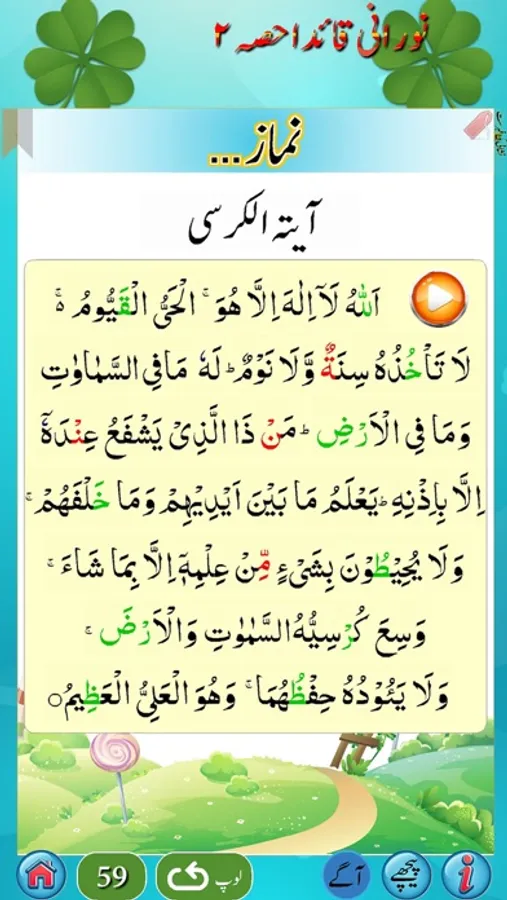 نورانی قائدا حصہ ۲
نماز...
آیتہ الکرسی
اَللّٰهُ لَآ اِلٰهَ اِلَّا هُوَ ۚ اَلْحَیُّ الْقَیُّوْمُ ۚ۬
لَا تَاْخُذُهٗ سِنَةٌ وَّلَا نَوْمٌ ؕ لَهٗ مَا فِی السَّمٰاوٰتِ
وَمَا فِی الْاَرْضِ ؕ مَنْ ذَا الَّذِیْ یَشْفَعُ عِنْدَهٗۤ
اِلَّا بِاِذْنِهٖ ؕ یَعْلَمُ مَا بَیْنَ اَیْدِیْهِمْ وَمَا خَلْفَهُمْ ۚ
وَلَا یُحِیْطُوْنَ بِشَیْءٍ مِّنْ عِلْمِهٖۤ اِلَّا بِمَا شَآءَ ۚ
وَسِعَ كُرْسِیُّهُ السَّمٰوٰتِ وَالْاَرْضَ ۚ
وَلَا یَـُٔوْدُهٗ حِفْظُهُمَا ۚ وَهُوَ الْعَلِیُّ الْعَظِیْمُ ○
59
لوپ
آگے
پیچھے